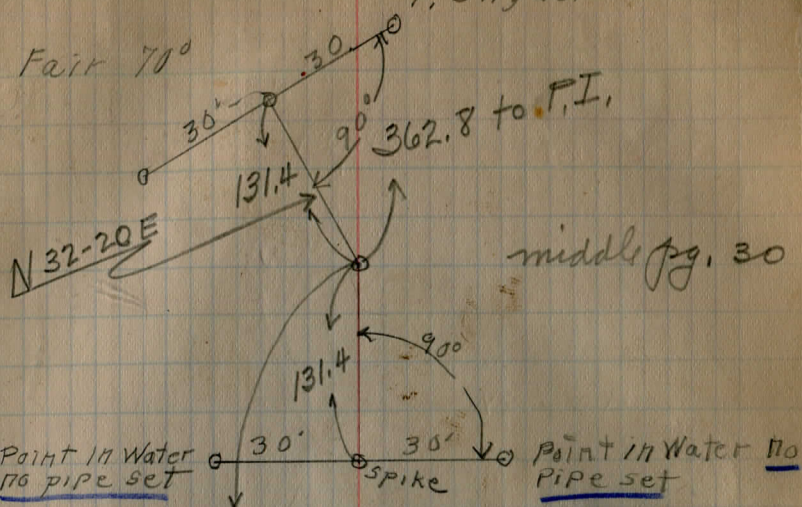 Fair 70°
.30
30'
90°
362.8 to P.I.
131.4
N 32-20 E
middle pg. 30
90°
131.4
30'
30'
Point in Water
no pipe set
Spike
Point in Water no
Pipe set